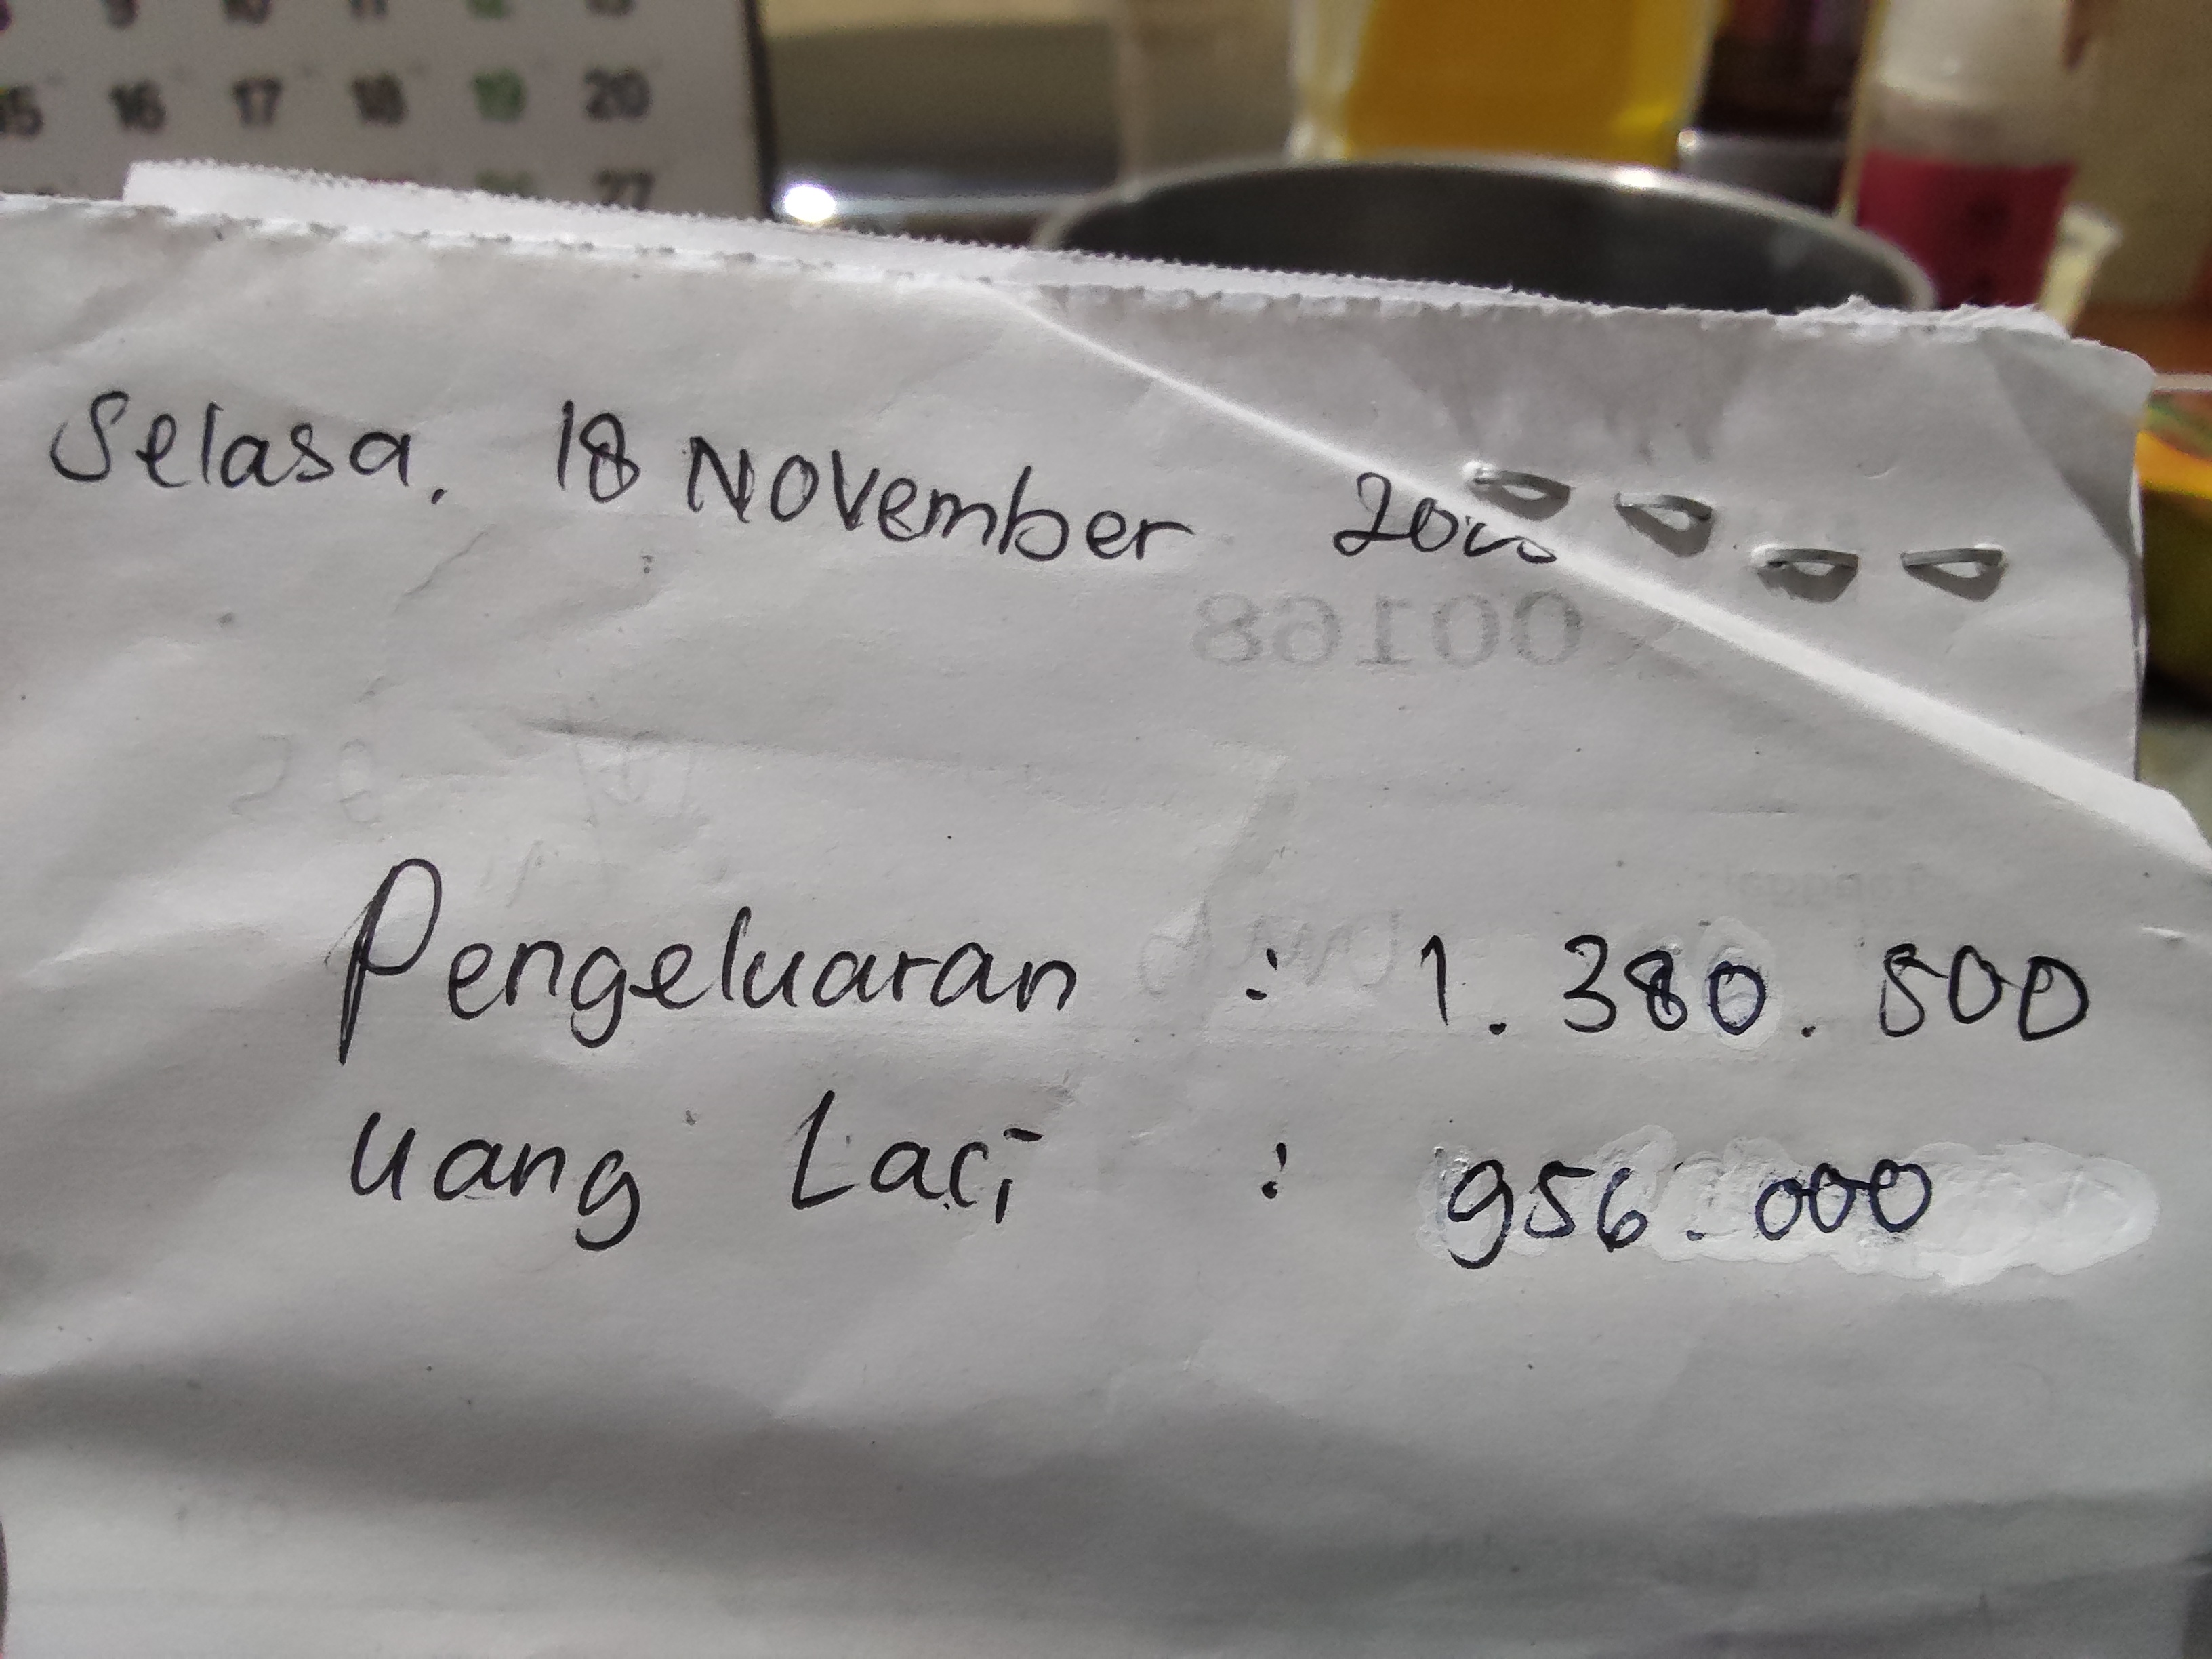 9 10 11 12 13
15 16 17 18 19 20
27
Selasa, 18 November
00168
Pengeluaran : 1.380.500
uang Laci : 956.000